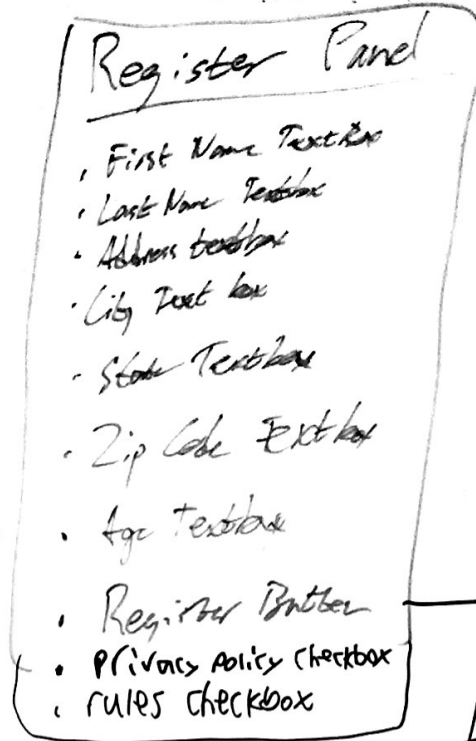 Register Panel
• First Name TextBox
• Last Name Textbox
• Address textbox
• City Text box
• State Textbox
• Zip Code Textbox
• Age Textbox
• Register Button
• Privacy Policy Checkbox
• rules checkbox